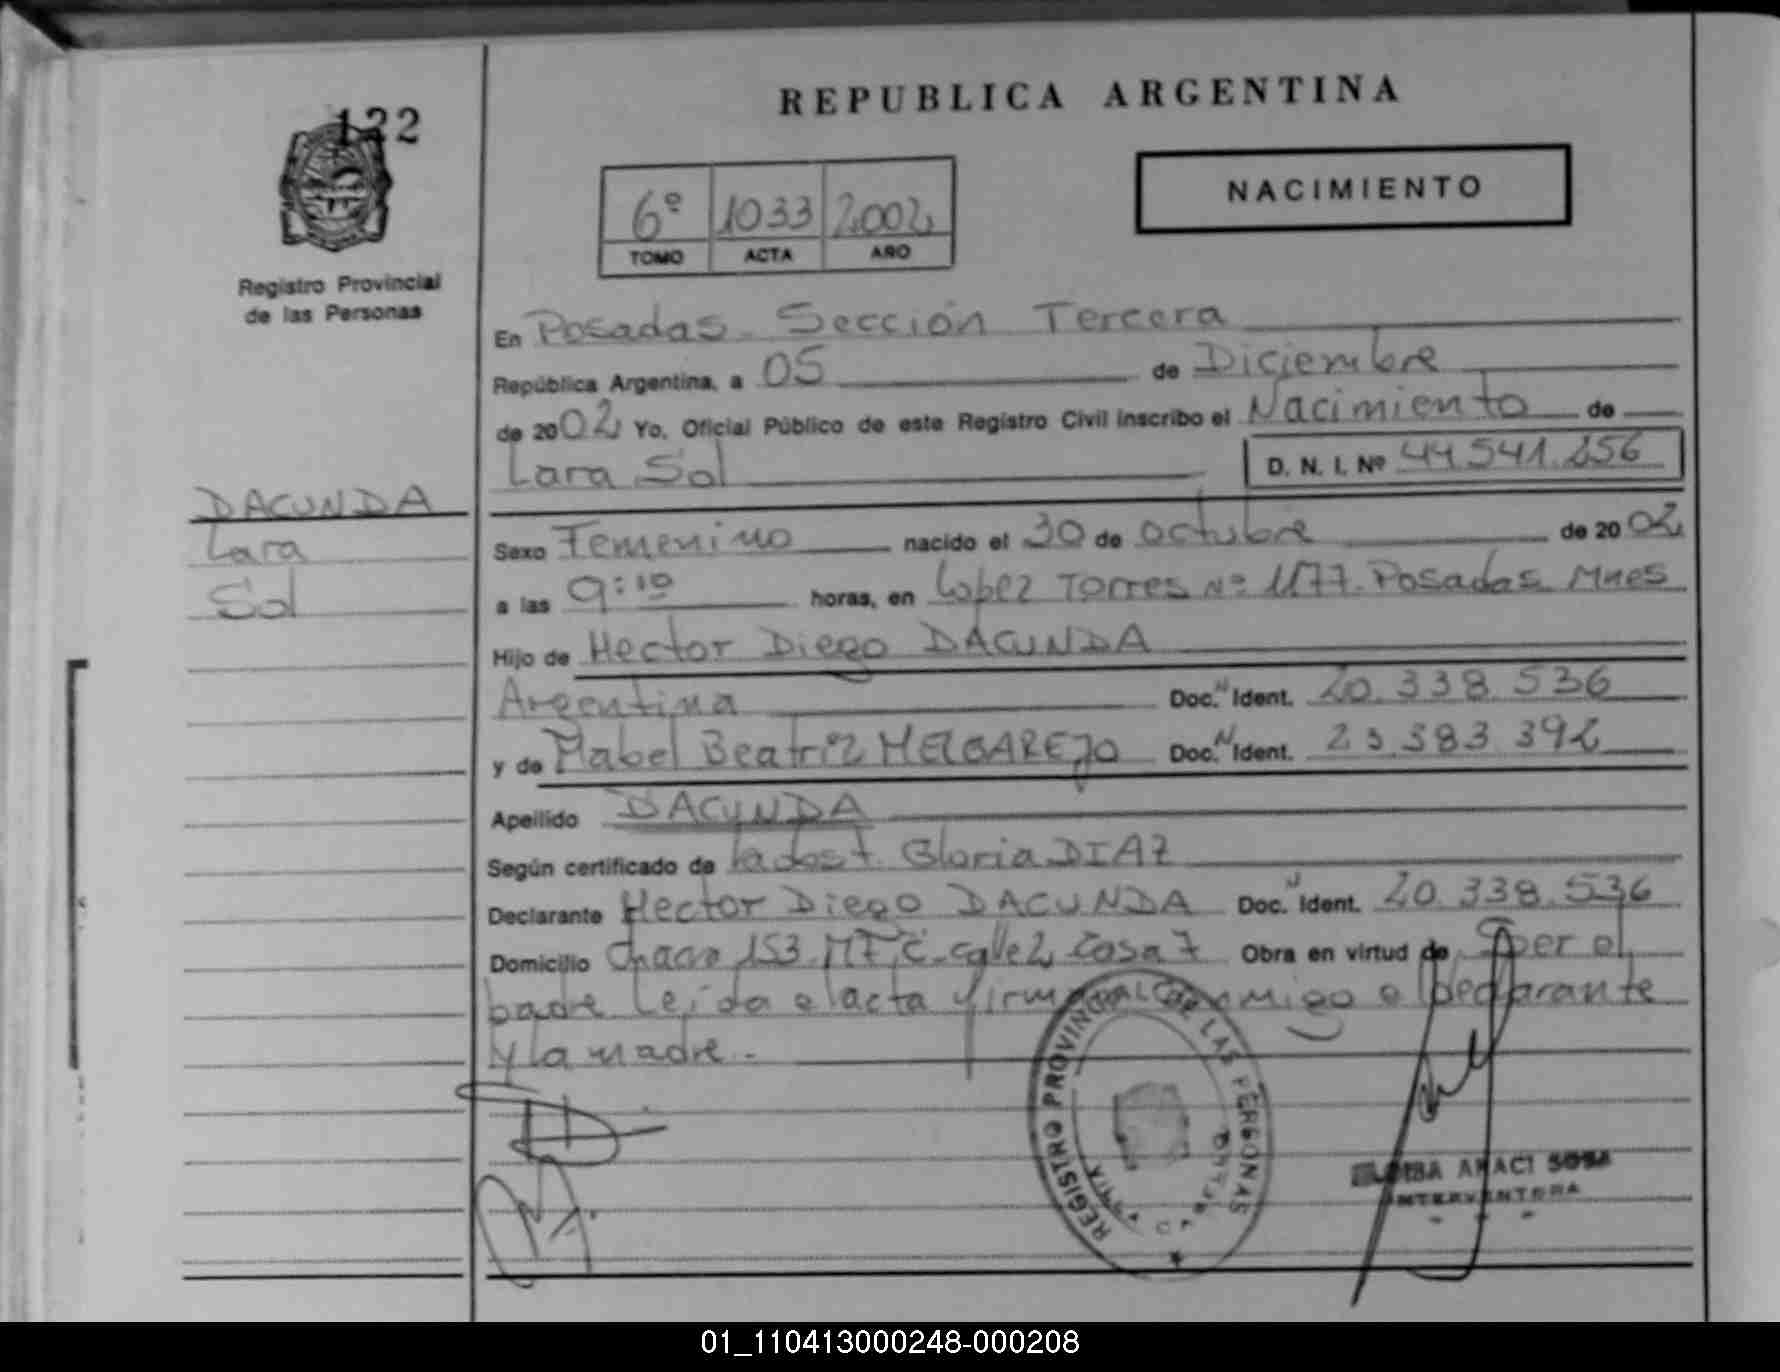 122
REPUBLICA ARGENTINA
NACIMIENTO
6º 1033 2002
TOMO ACTA AÑO
Registro Provincial
de las Personas
En Posadas Sección Tercera
República Argentina, a 05 de Diciembre
de 2002 Yo, Oficial Público de este Registro Civil inscribo el Nacimiento de
Lara Sol D. N. I. Nº 44.541.256
DACUNDA
Lara
Sol
Sexo Femenino nacido el 30 de octubre de 2002
a las 9:10 horas, en Lopez Torres Nº 1177. Posadas Mnes
Hijo de Hector Diego DACUNDA
Argentina Doc. N Ident. 20.338.536
y de Mabel Beatriz MELGAREJO Doc. N Ident. 23.383.392
Apellido DACUNDA
Según certificado de Gloria DIAZ
Declarante Hector Diego DACUNDA Doc. N Ident. 20.338.536
Domicilio Chacra 153 calle 2 casa 7 Obra en virtud de ser el
padre Leida el acta firma conmigo el Declarante
y la madre.-
REGISTRO PROVINCIAL DE LAS PERSONAS
ARACI SOSA
INTERVENTORA
01_110413000248-000208